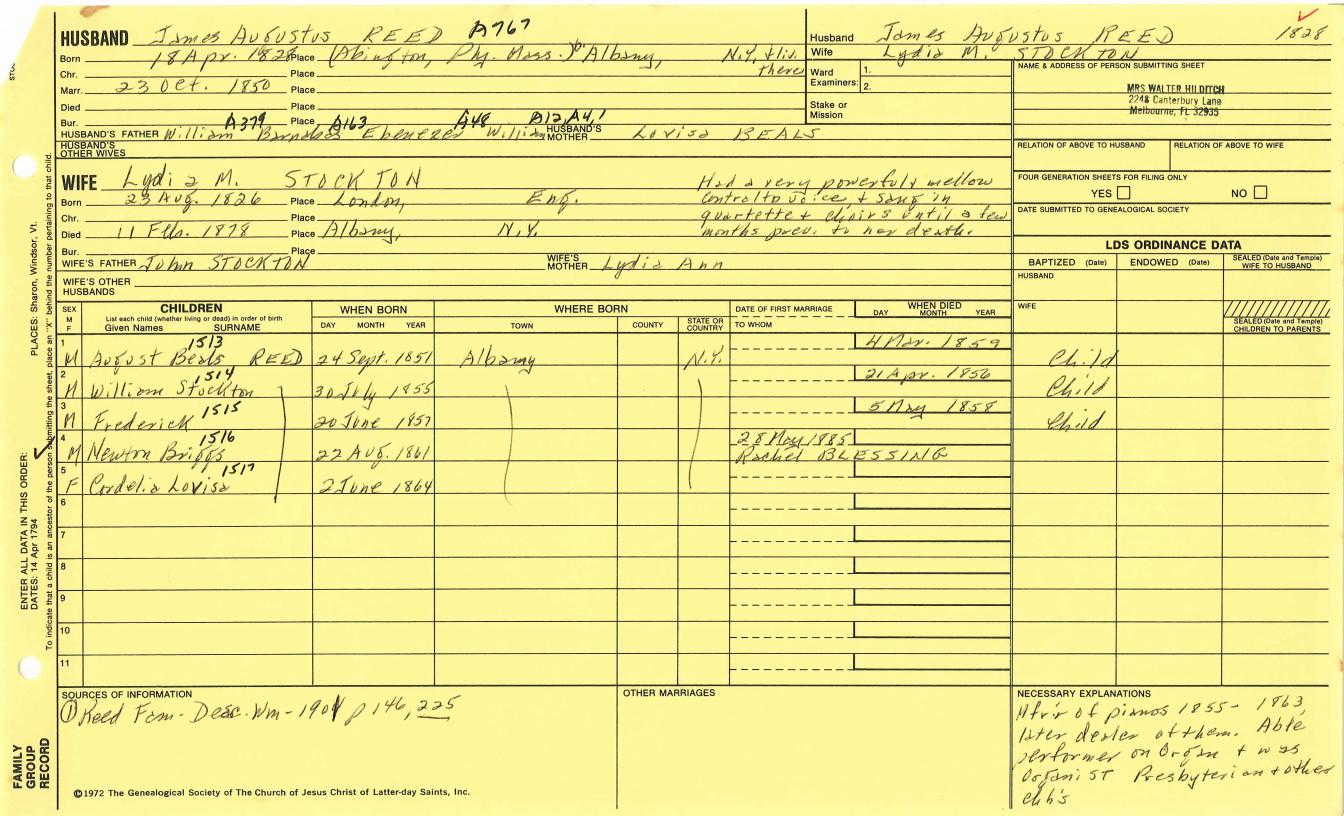 HUSBAND James Augustus REED A767
Born 18 Apr. 1828 Place (Abington, Ply. Mass.) b Albany, N.Y. & liv. there
Chr. Place
Marr. 23 Oct. 1850 Place
Died Place
Bur. Place
A379 A163 A48 A12, A4, 1
HUSBAND'S FATHER William Barnabas Ebenezer William HUSBAND'S MOTHER Lovisa BEALS
HUSBAND'S OTHER WIVES
WIFE Lydia M. STOCKTON
Born 23 Aug. 1826 Place London, Eng.
Chr. Place
Died 11 Feb. 1878 Place Albany, N.Y.
Bur. Place
Had a very powerful, mellow
contralto voice, & sang in
quartette & choirs until a few
months prev. to her death.
WIFE'S FATHER John STOCKTON WIFE'S MOTHER Lydia Ann
WIFE'S OTHER HUSBANDS
Husband James Augustus REED 1828
Wife Lydia M. STOCKTON
Ward Examiners: 1. 2.
Stake or Mission
NAME & ADDRESS OF PERSON SUBMITTING SHEET
MRS WALTER HILDITCH
2248 Canterbury Lane
Melbourne, FL 32935
RELATION OF ABOVE TO HUSBAND RELATION OF ABOVE TO WIFE
FOUR GENERATION SHEETS FOR FILING ONLY
YES NO
DATE SUBMITTED TO GENEALOGICAL SOCIETY
LDS ORDINANCE DATA
BAPTIZED (Date) ENDOWED (Date) SEALED (Date and Temple) WIFE TO HUSBAND
HUSBAND
WIFE
SEALED (Date and Temple) CHILDREN TO PARENTS
SEX M F CHILDREN List each child (whether living or dead) in order of birth Given Names SURNAME WHEN BORN DAY MONTH YEAR WHERE BORN TOWN COUNTY STATE OR COUNTRY DATE OF FIRST MARRIAGE TO WHOM WHEN DIED DAY MONTH YEAR
1 M August Beals REED 1513 24 Sept. 1851 Albany N.Y. 4 Mar. 1859 Child
2 M William Stockton 1514 30 July 1855 21 Apr. 1856 Child
3 M Frederick 1515 20 June 1857 5 May 1858 Child
4 M Newton Briggs 1516 22 Aug. 1861 28 May 1885 Rachel BLESSING
5 F Cordelia Lovisa 1517 2 June 1864
6
7
8
9
10
11
SOURCES OF INFORMATION
① Reed Fam- Desc. Wm - 1901 p 146, 225
OTHER MARRIAGES
NECESSARY EXPLANATIONS
Mfr'r of pianos 1855- 1863,
later dealer of them. Able
performer on Organ & was
Organist Presbyterian & other
chh's
©1972 The Genealogical Society of The Church of Jesus Christ of Latter-day Saints, Inc.
FAMILY GROUP RECORD
ENTER ALL DATA IN THIS ORDER:
DATES: 14 Apr 1794
PLACES: Sharon, Windsor, Vt.
To indicate that a child is an ancestor of the person submitting the sheet, place an "X" behind the number pertaining to that child.